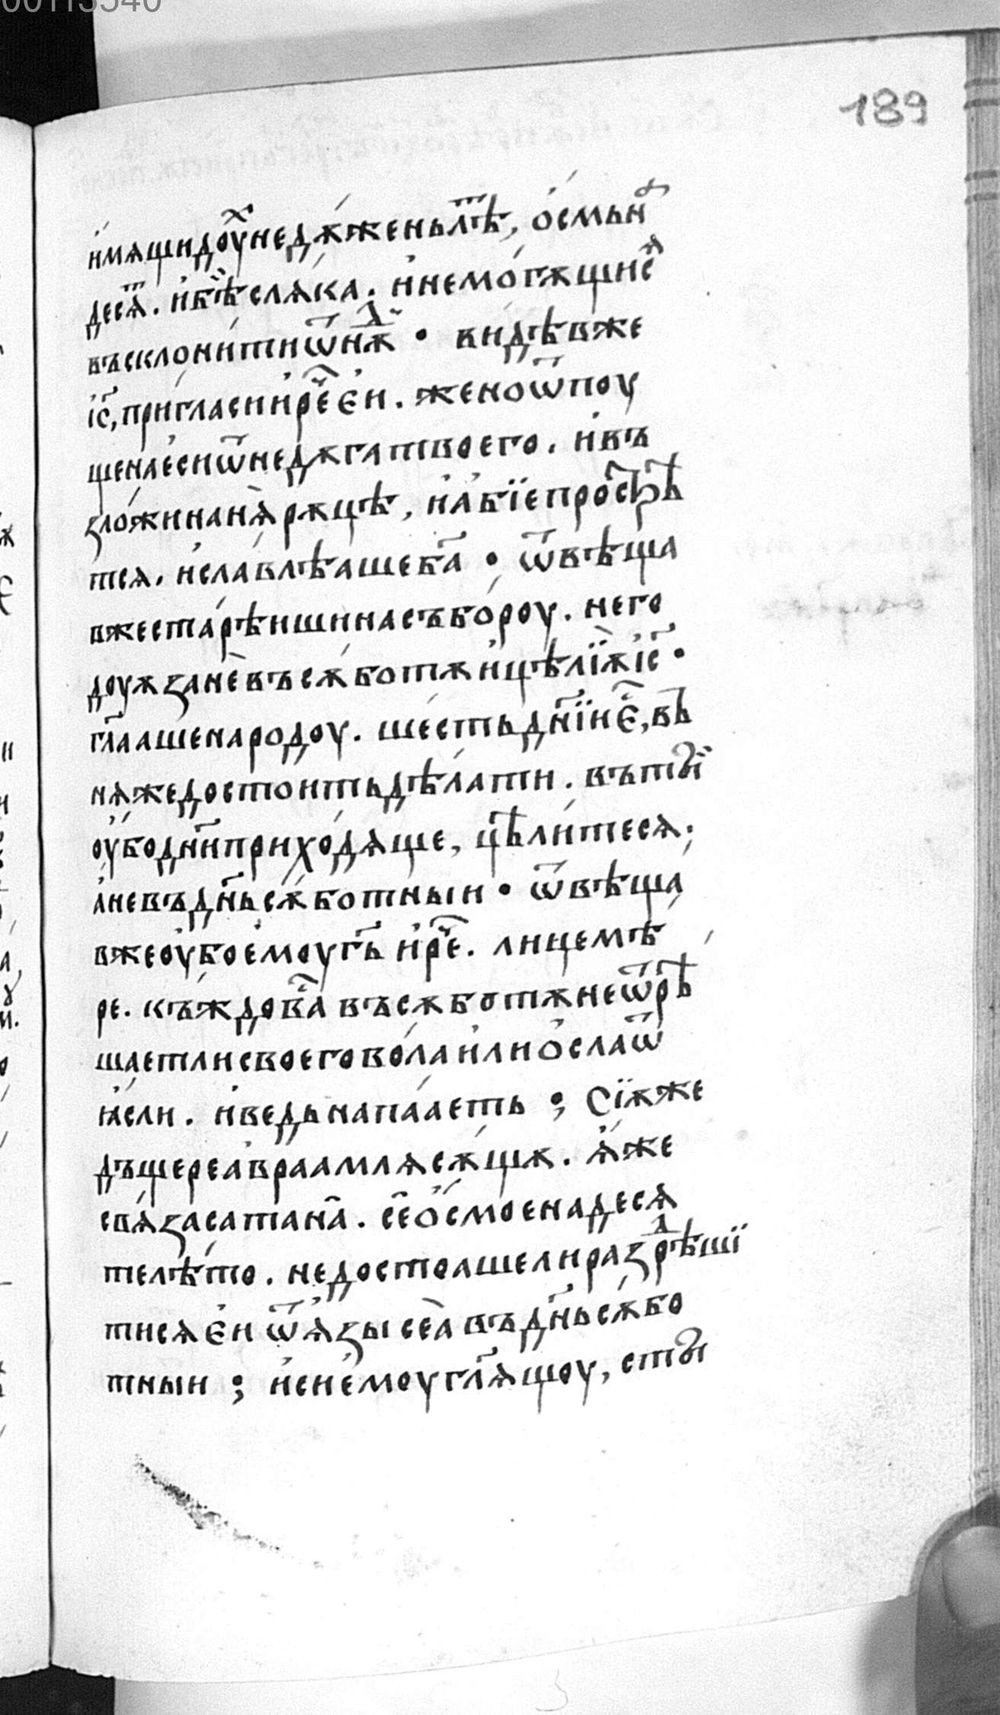 00113540
189
и҆мѧщи доу҆ⷯ недѫженъ лⷮѣ, о҆смьнⷶ
десѧⷮ. и҆ бⷷѣ слѧ́ка. и҆ не мо́гѫщисⷧ
въсклони́ти ѿнѫⷣ • видѣв же
і҆с҃, пригласи и҆ рⷱ҇е е҆и. жено ѿпоу
щена е҆си ѿ недѫга твоего. и҆ въ
зложи на нѧ̀ рѫцѣ, и҆ а҆бїе простⷬ҇ѣ
тсѧ. и҆ славлѣаше б҃а • ѿвѣща
вже старѣишина събороу. него
доуѫ зане̑ въ сѫботѫ и҆цѣлїѫ і҆с҃ •
гл҃аше народоу. шесть дн҃їи е҆ⷭ҇, въ
нѧже достоить дѣлати. въ тыⷯ
оу҆бо дн҃и приходѧще, цѣли́тесѧ.
а҆ не въ дн҃ь сѫботныи • ѿвѣща
вже оу҆бо е҆моу г҃ь и҆ рⷱ҇е. лицемѣ
ре. къждо ва҇ въ сѫботѫ не ѿрѣ
щаетли своего вола и҆ли о҆сла ѿ
ꙗ҆сли. и҆ ведь напааеть ; Сїѫже
дъщере а҆враамлѧ сѫщѫ. ѫ҆же
свѧ́за сатана̑. се о҆смоенадесѧ
те лѣто. не достоаше ли раздрѣши
тисѧ е҆и ѿ ѫ҆зы сеѧ̀ въ дн҃ь сѫбо
тныи ; и҆ си е҆моу гл҃ѧщоу, стыⷣ